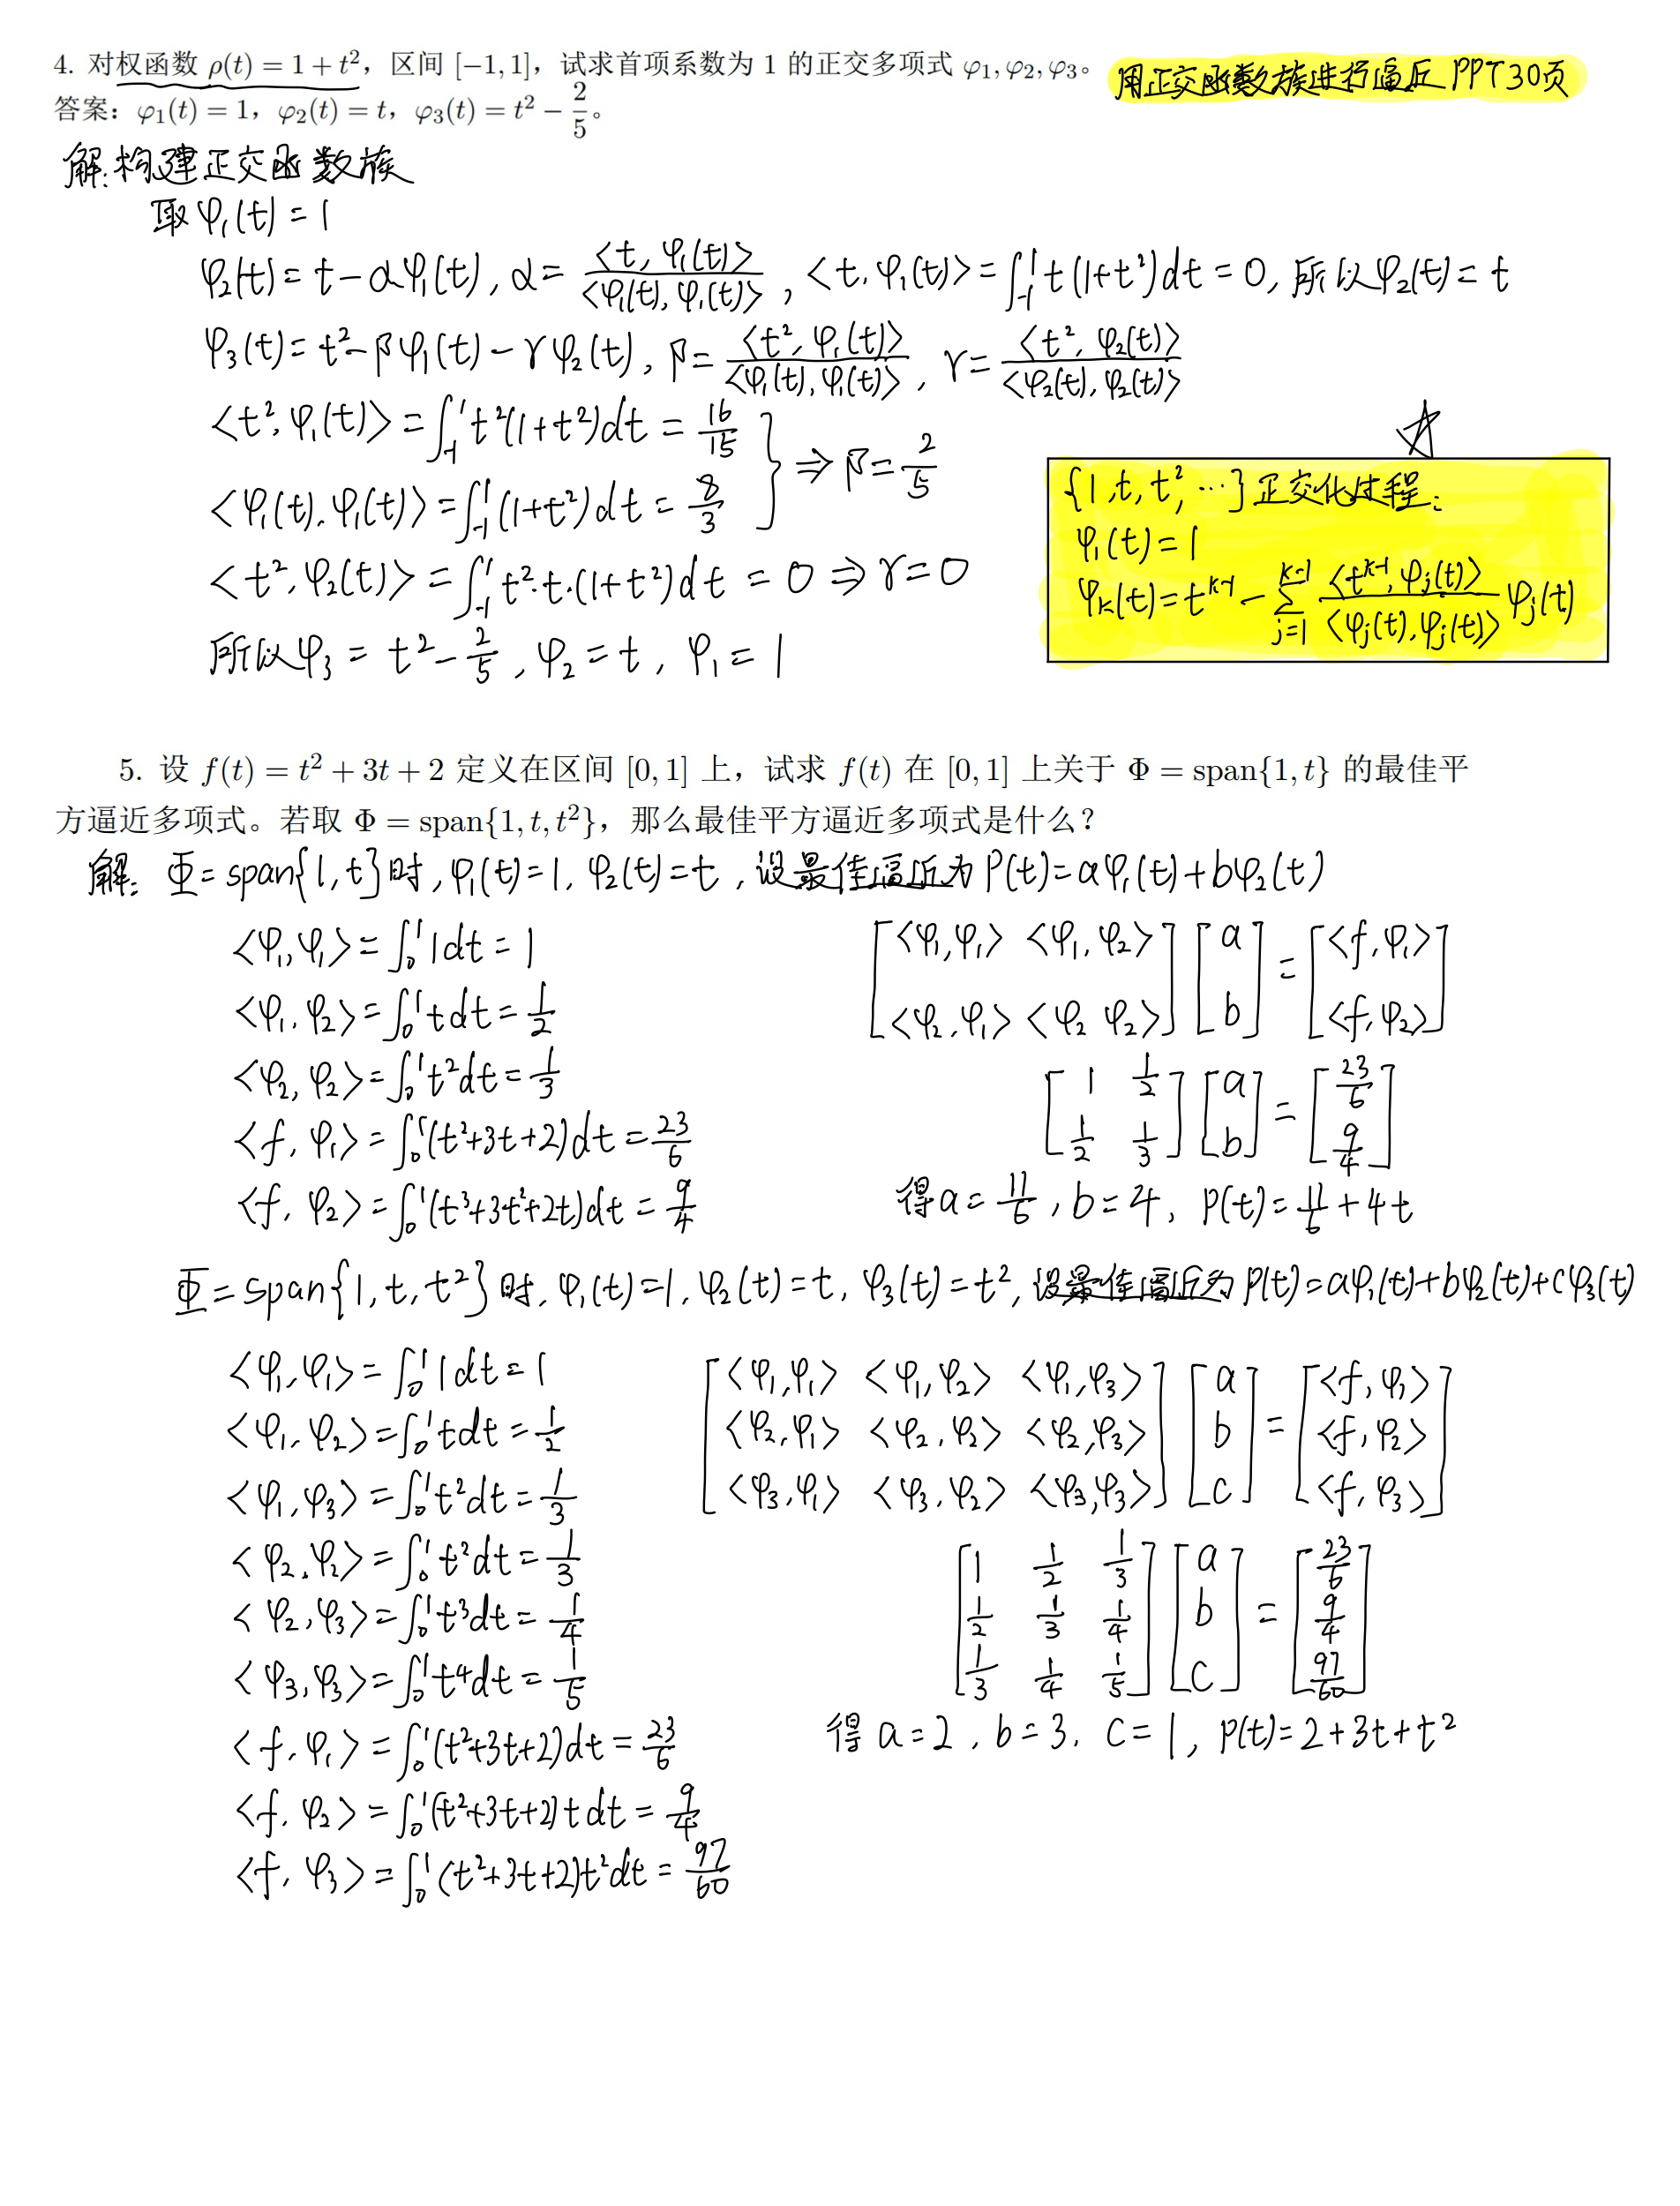 4. 对权函数 ρ(t) = 1 + t²，区间 [−1, 1]，试求首项系数为 1 的正交多项式 φ₁, φ₂, φ₃。 用正交函数族进行逼近 PPT30页
答案：φ₁(t) = 1，φ₂(t) = t，φ₃(t) = t² − 2/5。
解：构建正交函数族
取 φ₁(t) = 1
φ₂(t) = t − αφ₁(t), α = <t, φ₁(t)>/<φ₁(t), φ₁(t)>, <t, φ₁(t)> = ∫₋₁¹ t(1+t²)dt = 0, 所以φ₂(t) = t
φ₃(t) = t² − βφ₁(t) − γφ₂(t), β = <t², φ₁(t)>/<φ₁(t), φ₁(t)>, γ = <t², φ₂(t)>/<φ₂(t), φ₂(t)>
<t², φ₁(t)> = ∫₋₁¹ t²(1+t²)dt = 16/15
<φ₁(t), φ₁(t)> = ∫₋₁¹ (1+t²)dt = 8/3 } ⇒ β = 2/5
<t², φ₂(t)> = ∫₋₁¹ t²·t·(1+t²)dt = 0 ⇒ γ = 0
所以φ₃ = t² − 2/5, φ₂ = t, φ₁ = 1
{1, t, t², ⋯} 正交化过程：
φ₁(t) = 1
φₖ(t) = tᵏ⁻¹ − Σⱼ₌₁ᵏ⁻¹ <tᵏ⁻¹, φⱼ(t)>/<φⱼ(t), φⱼ(t)> φⱼ(t)
5. 设 f(t) = t² + 3t + 2 定义在区间 [0, 1] 上，试求 f(t) 在 [0, 1] 上关于 Φ = span{1, t} 的最佳平
方逼近多项式。若取 Φ = span{1, t, t²}，那么最佳平方逼近多项式是什么？
解：Φ = span{1, t}时, φ₁(t) = 1, φ₂(t) = t, 设最佳逼近为 P(t) = aφ₁(t) + bφ₂(t)
<φ₁, φ₁> = ∫₀¹ 1dt = 1
<φ₁, φ₂> = ∫₀¹ tdt = 1/2
<φ₂, φ₂> = ∫₀¹ t²dt = 1/3
<f, φ₁> = ∫₀¹ (t²+3t+2)dt = 23/6
<f, φ₂> = ∫₀¹ (t³+3t²+2t)dt = 9/4
[<φ₁,φ₁> <φ₁,φ₂>; <φ₂,φ₁> <φ₂ φ₂>] [a; b] = [<f,φ₁>; <f,φ₂>]
[1 1/2; 1/2 1/3] [a; b] = [23/6; 9/4]
得 a = 11/6, b = 4, P(t) = 11/6 + 4t
Φ = span{1, t, t²} 时, φ₁(t) = 1, φ₂(t) = t, φ₃(t) = t², 设最佳逼近为 P(t) = aφ₁(t) + bφ₂(t) + cφ₃(t)
<φ₁, φ₁> = ∫₀¹ 1dt = 1
<φ₁, φ₂> = ∫₀¹ tdt = 1/2
<φ₁, φ₃> = ∫₀¹ t²dt = 1/3
<φ₂, φ₂> = ∫₀¹ t²dt = 1/3
<φ₂, φ₃> = ∫₀¹ t³dt = 1/4
<φ₃, φ₃> = ∫₀¹ t⁴dt = 1/5
<f, φ₁> = ∫₀¹ (t²+3t+2)dt = 23/6
<f, φ₂> = ∫₀¹ (t²+3t+2)tdt = 9/4
<f, φ₃> = ∫₀¹ (t²+3t+2)t²dt = 97/60
[<φ₁,φ₁> <φ₁,φ₂> <φ₁,φ₃>; <φ₂,φ₁> <φ₂,φ₂> <φ₂,φ₃>; <φ₃,φ₁> <φ₃,φ₂> <φ₃,φ₃>] [a; b; c] = [<f,φ₁>; <f,φ₂>; <f,φ₃>]
[1 1/2 1/3; 1/2 1/3 1/4; 1/3 1/4 1/5] [a; b; c] = [23/6; 9/4; 97/60]
得 a = 2, b = 3, c = 1, P(t) = 2 + 3t + t²